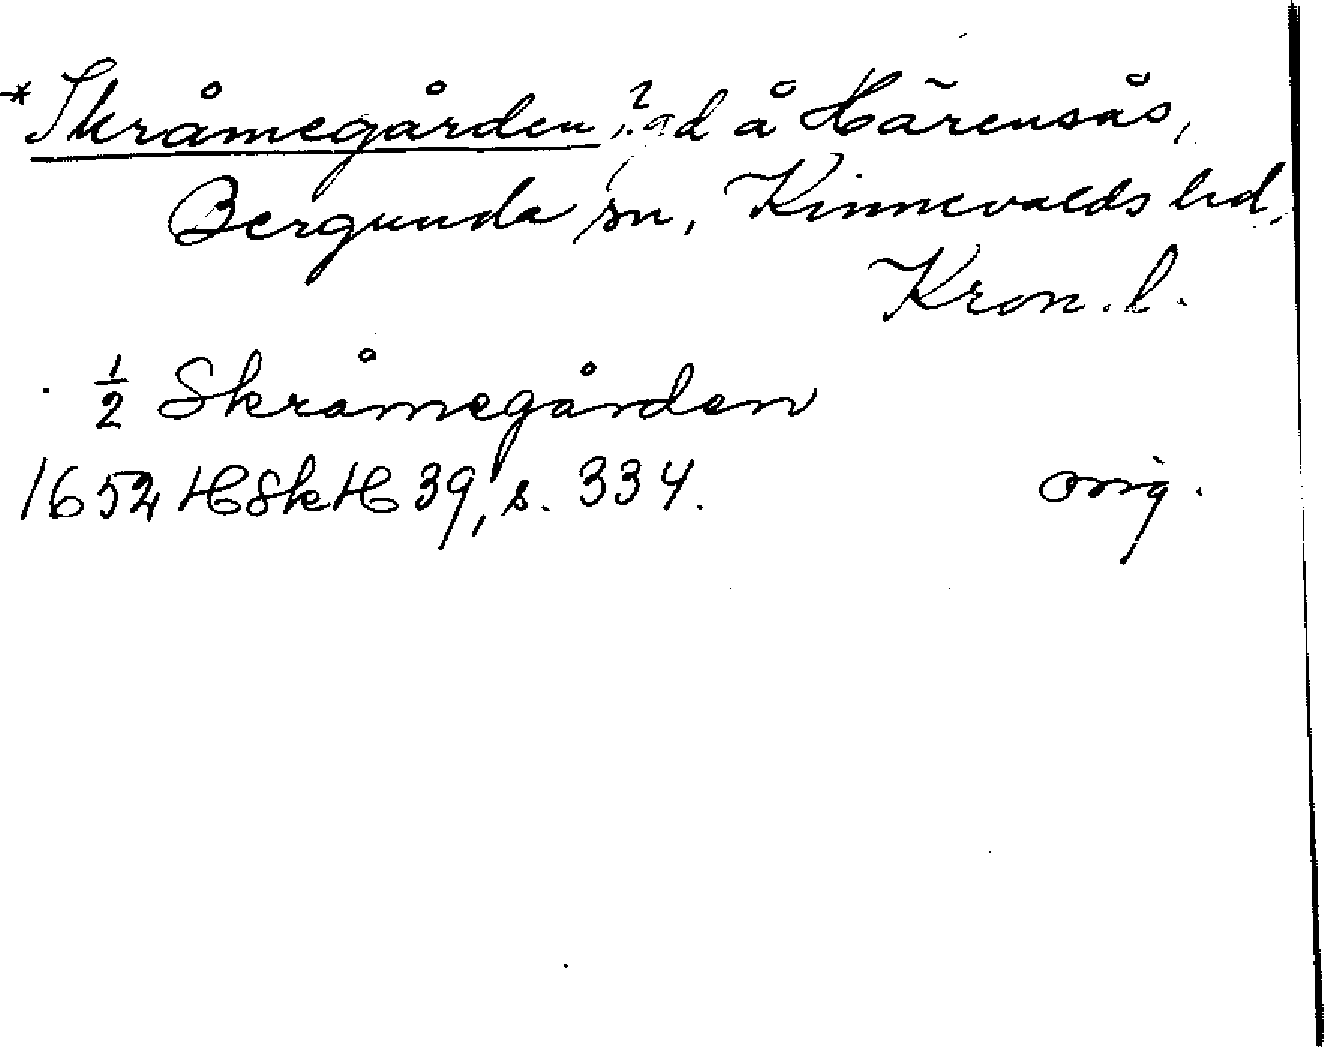 *Skråmegården, ? gd å Härensås,
Bergunda sn, Kinnevalds hd,
Kron. l.
½ Skråmegården
1652 HSkH 39, s. 334. orig.